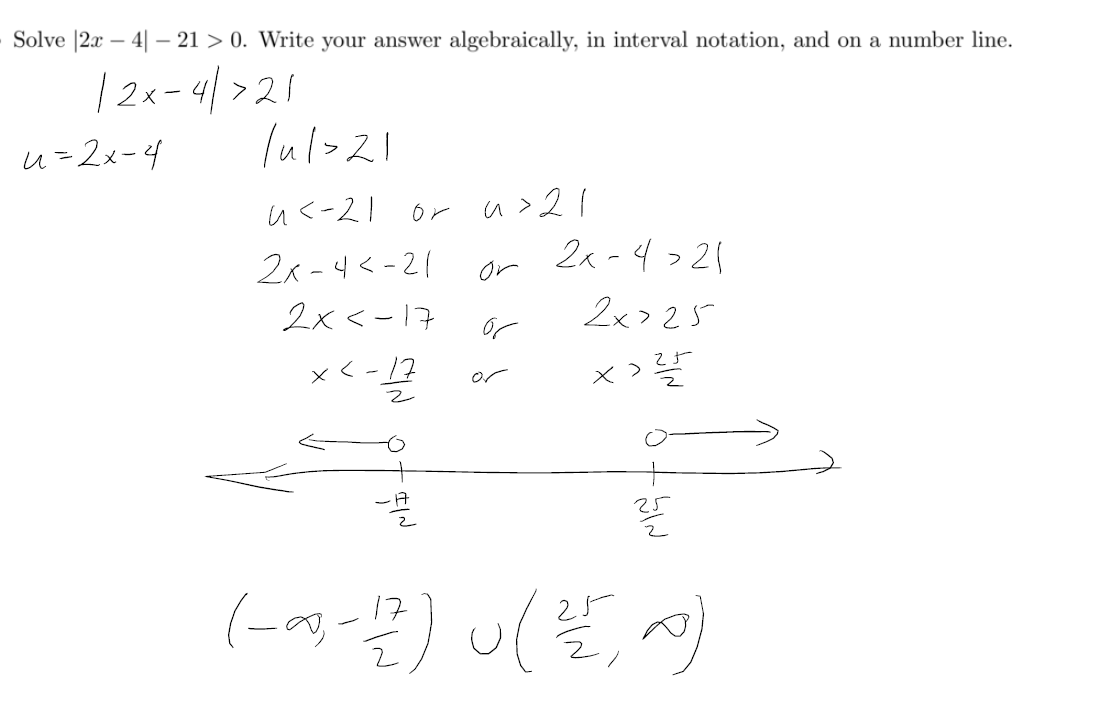 Solve |2x − 4| − 21 > 0. Write your answer algebraically, in interval notation, and on a number line.
|2x-4|>21
u=2x-4 |u|>21
u<-21 or u>21
2x-4<-21 or 2x-4>21
2x<-17 or 2x>25
x<-17/2 or x>25/2
-17/2 25/2
(-∞,-17/2) ∪ (25/2, ∞)